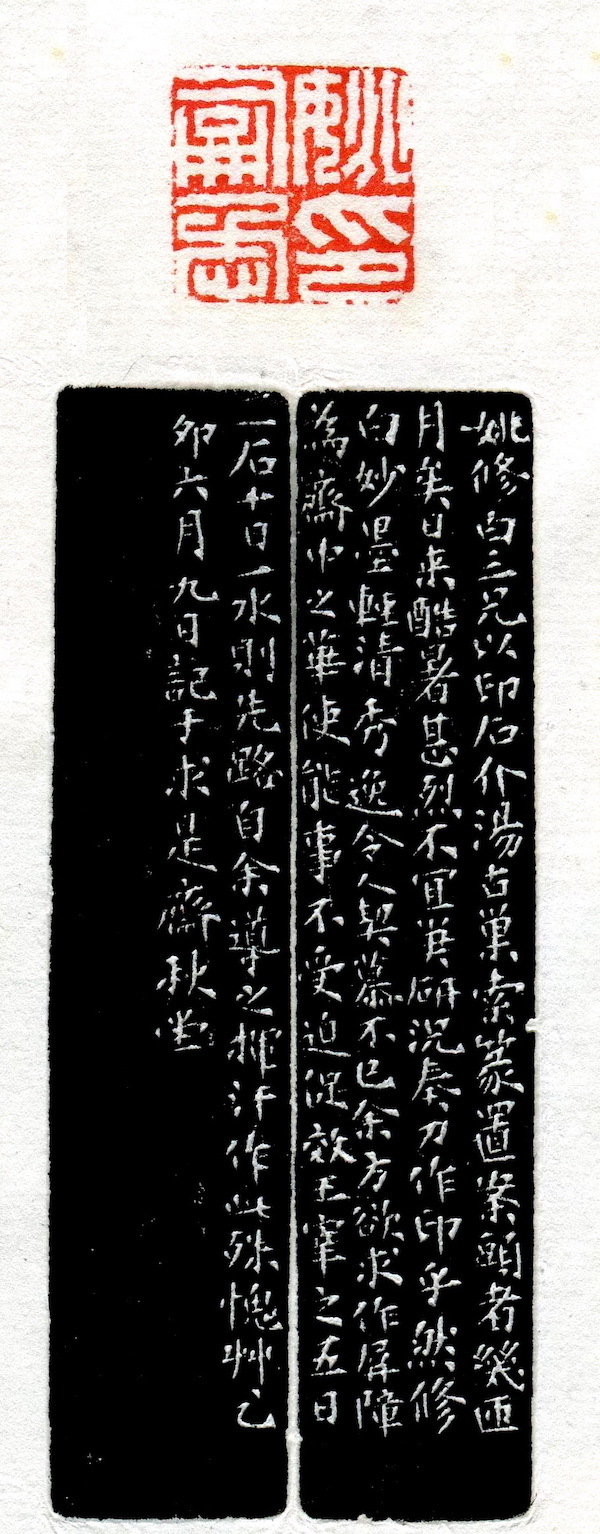 姚印
姚修白三兄以印石介湯古巢索篆置案頭者幾匝
月矣日来酷暑甚烈不宜筆研況奏刀作印乎然修
白妙墨輕清秀逸令人契慕不已余方欲求作屏障
為齋中之華使能事不受迫促效王宰之五日
一石十日一水則先路自余導之揮汗作此殊愧艸乙
卯六月九日記于求是齋秋堂